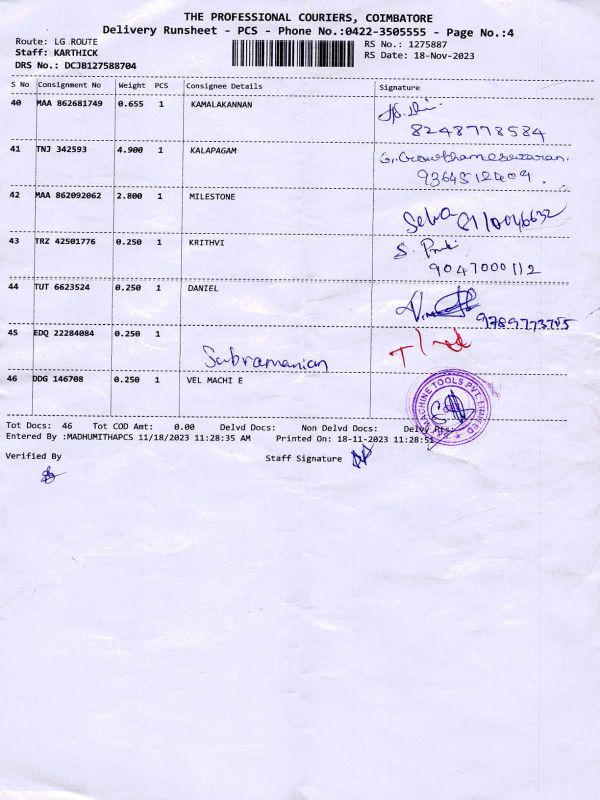 THE PROFESSIONAL COURIERS, COIMBATORE
Delivery Runsheet - PCS - Phone No.:0422-3505555 - Page No.:4
Route: LG ROUTE
RS No.: 1275887
Staff: KARTHICK
RS Date: 18-Nov-2023
DRS No.: DCJB127588704
S No Consignment No Weight PCS Consignee Details Signature
40 MAA 862681749 0.655 1 KAMALAKANNAN
8248778584
41 TNJ 342593 4.900 1 KALAPAGAM
9364512409
42 MAA 862092062 2.800 1 MILESTONE
Selva 8110046632
43 TRZ 42501776 0.250 1 KRITHVI
9047000112
44 TUT 6623524 0.250 1 DANIEL
9789773705
45 EDQ 22284084 0.250 1
Subramanian
46 DDG 146708 0.250 1 VEL MACHI E
MACHINE TOOLS PVT. LIMITED
Tot Docs: 46 Tot COD Amt: 0.00 Delvd Docs: Non Delvd Docs: Delvy Pts:
Entered By :MADHUMITHAPCS 11/18/2023 11:28:35 AM Printed On: 18-11-2023 11:28:51
Verified By
Staff Signature